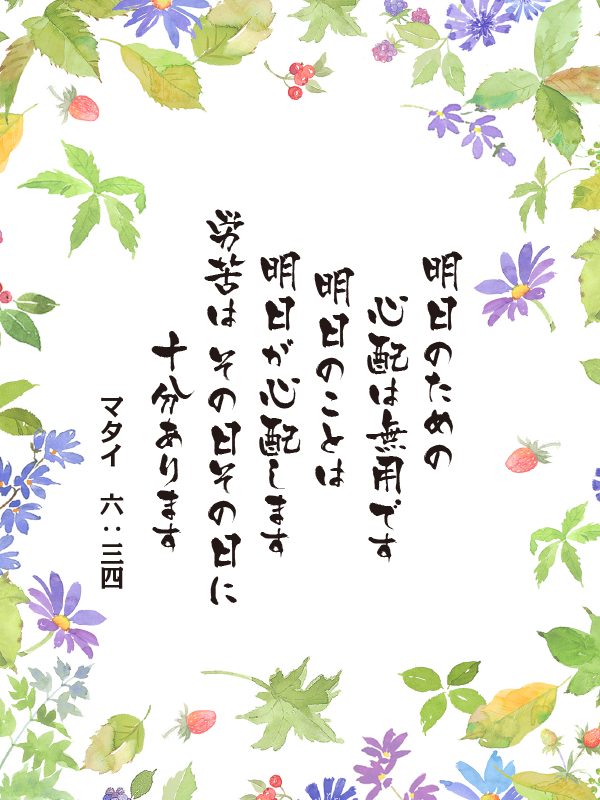 明日のための
心配は無用です
明日のことは
明日が心配します
労苦は その日その日に
十分あります
マタイ 六：三四